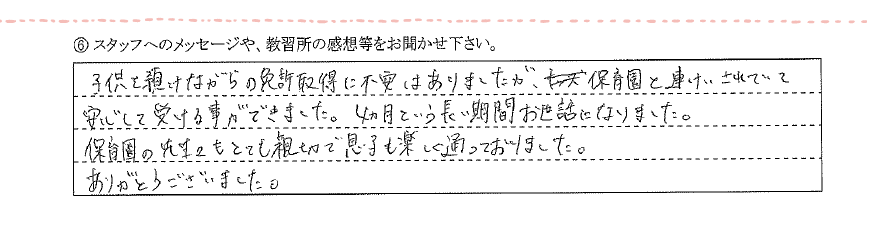 ⑥ スタッフへのメッセージや、教習所の感想等をお聞かせ下さい。
子供を預けながらの免許取得に不安はありましたが、保育園と連けいされていて
安心して受ける事ができました。4ヵ月という長い期間お世話になりました。
保育園の先生もとても親切で息子も楽しく通っておりました。
ありがとうございました。